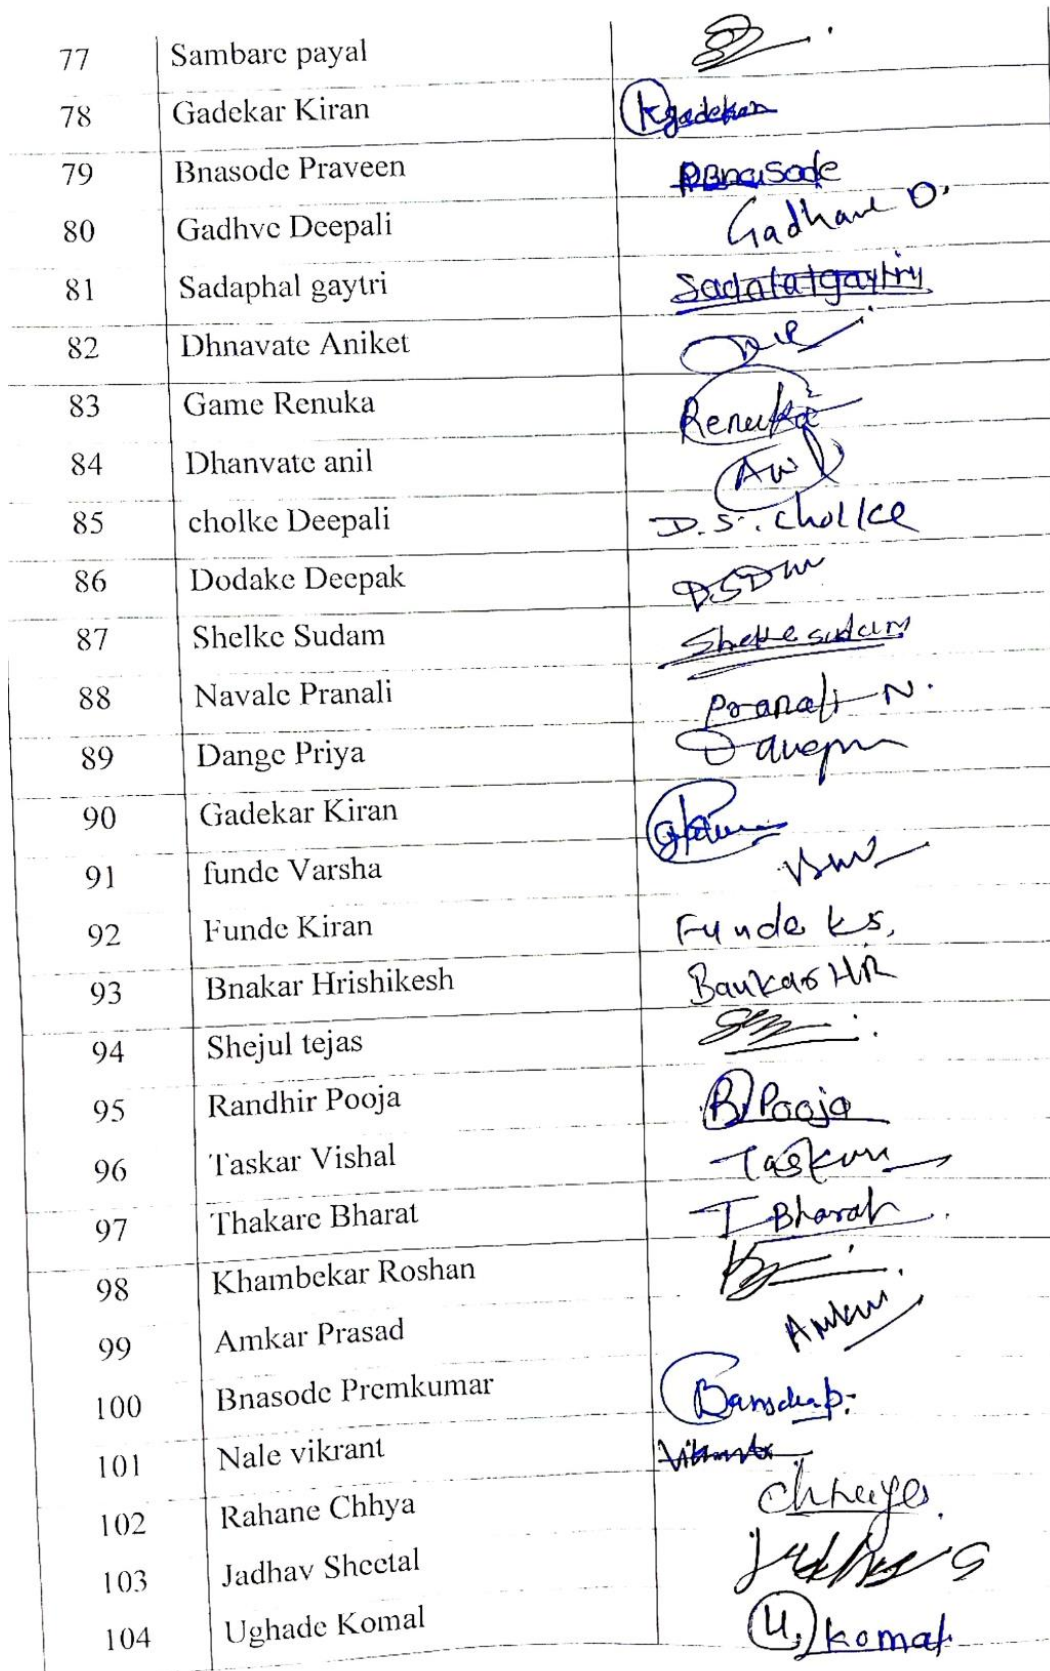 77 Sambare payal
78 Gadekar Kiran Kgadekar
79 Bnasode Praveen PBnasode
80 Gadhve Deepali Gadhave D.
81 Sadaphal gaytri
82 Dhnavate Aniket
83 Game Renuka Renuka
84 Dhanvate anil
85 cholke Deepali D.S. cholke
86 Dodake Deepak
87 Shelke Sudam Shelke sudam
88 Navale Pranali Pranali N.
89 Dange Priya
90 Gadekar Kiran
91 funde Varsha
92 Funde Kiran Funde KS.
93 Bnakar Hrishikesh Bankar HR
94 Shejul tejas
95 Randhir Pooja R. Pooja
96 Taskar Vishal Taskar
97 Thakare Bharat T Bharat
98 Khambekar Roshan
99 Amkar Prasad
100 Bnasode Premkumar
101 Nale vikrant
102 Rahane Chhya
103 Jadhav Sheetal
104 Ughade Komal U. komal